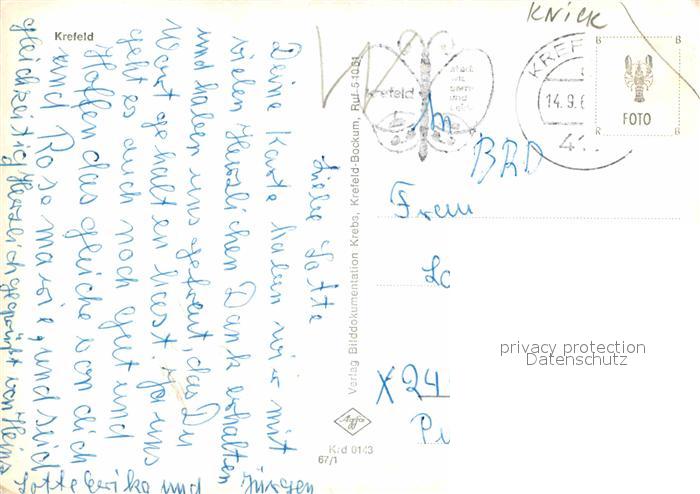 Knick
Krefeld
KREF
14.9.6
41
FOTO
krefeld
BRD
Frau
Lo
X 24
Pi
Liebe Lotte
Deine Karte haben wir mit
vielen Herzlichen Dank erhalten
und haben uns gefreut, das Du
Wort gehalten hast. For uns
geht es auch noch gut und
Hoffen das gleiche von dich
und Rosemarie, und seid
gleichzeitig Herzlich gegrüßt von Heinz
Lotte Gerika und Jürgen
Verlag Bilddokumentation Krebs, Krefeld-Bockum, Ruf 5 10 61
Agfa
Krd 0143
67/1
privacy protection
Datenschutz